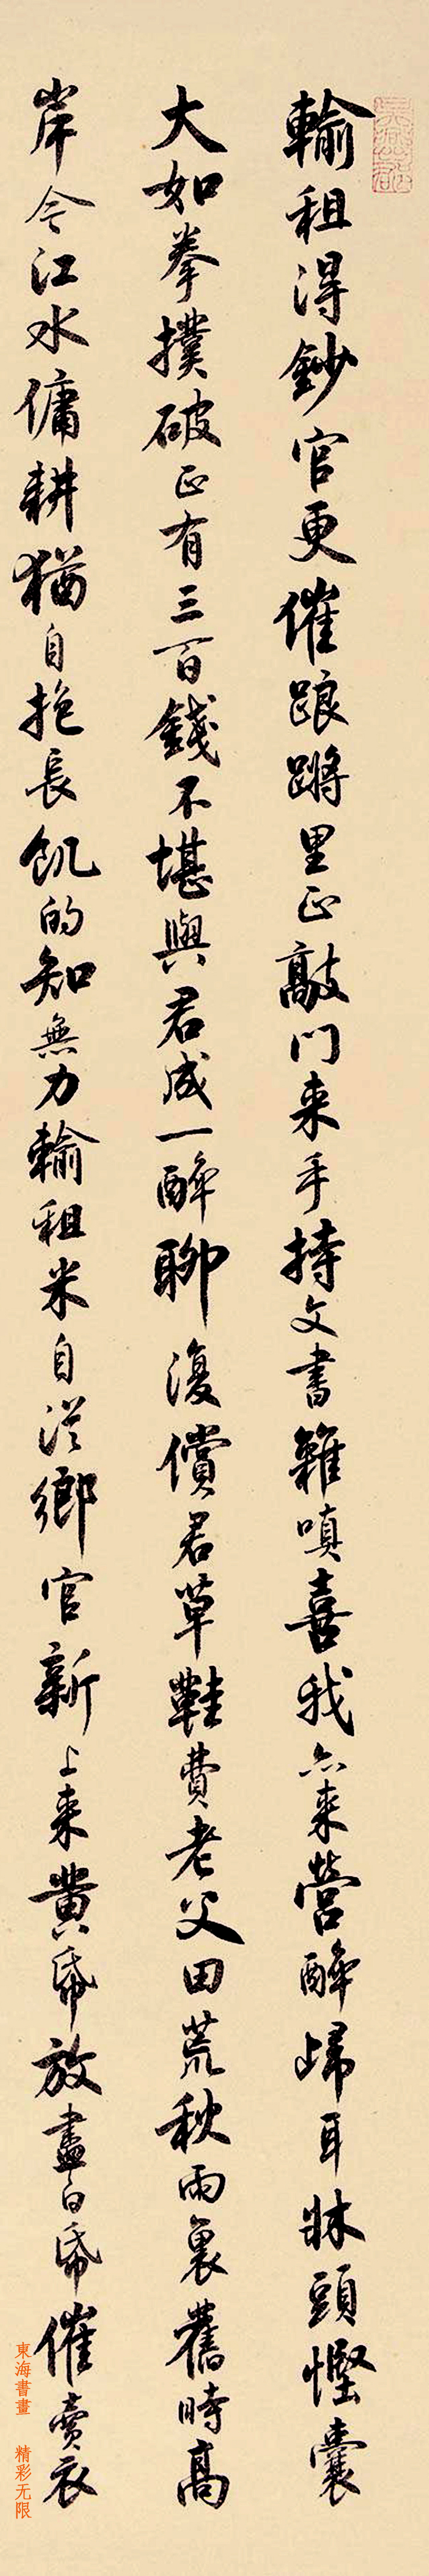 輸租得鈔官更催踉蹡里正敲門来手持文書雜嗔喜我亦来營醉歸耳牀頭慳囊
大如拳撲破正有三百錢不堪與君成一醉聊復償君草鞋費老父田荒秋雨裏舊時高
岸今江水傭耕猶自抱長飢的知無力輸租米自從鄉官新上来黄紙放盡白紙催賣衣
東海書畫 精彩无限